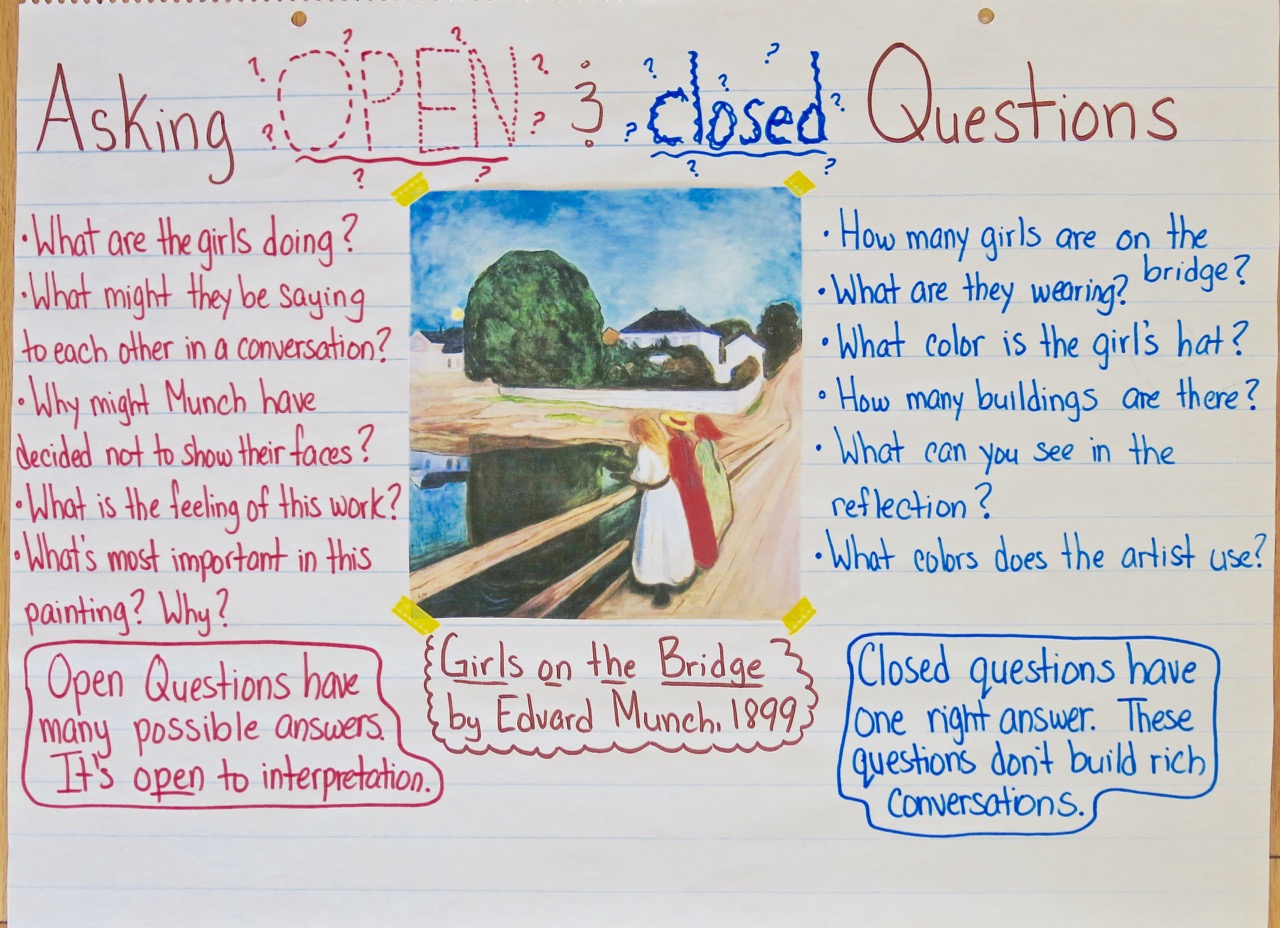 Asking OPEN & closed Questions
• What are the girls doing?
• What might they be saying
to each other in a conversation?
• Why might Munch have
decided not to show their faces?
• What is the feeling of this work?
• What's most important in this
painting? Why?
Open Questions have
many possible answers.
It's open to interpretation.
Girls on the Bridge
by Edvard Munch, 1899
• How many girls are on the
bridge?
• What are they wearing?
• What color is the girl's hat?
• How many buildings are there?
• What can you see in the
reflection?
• What colors does the artist use?
Closed questions have
one right answer. These
questions don't build rich
conversations.